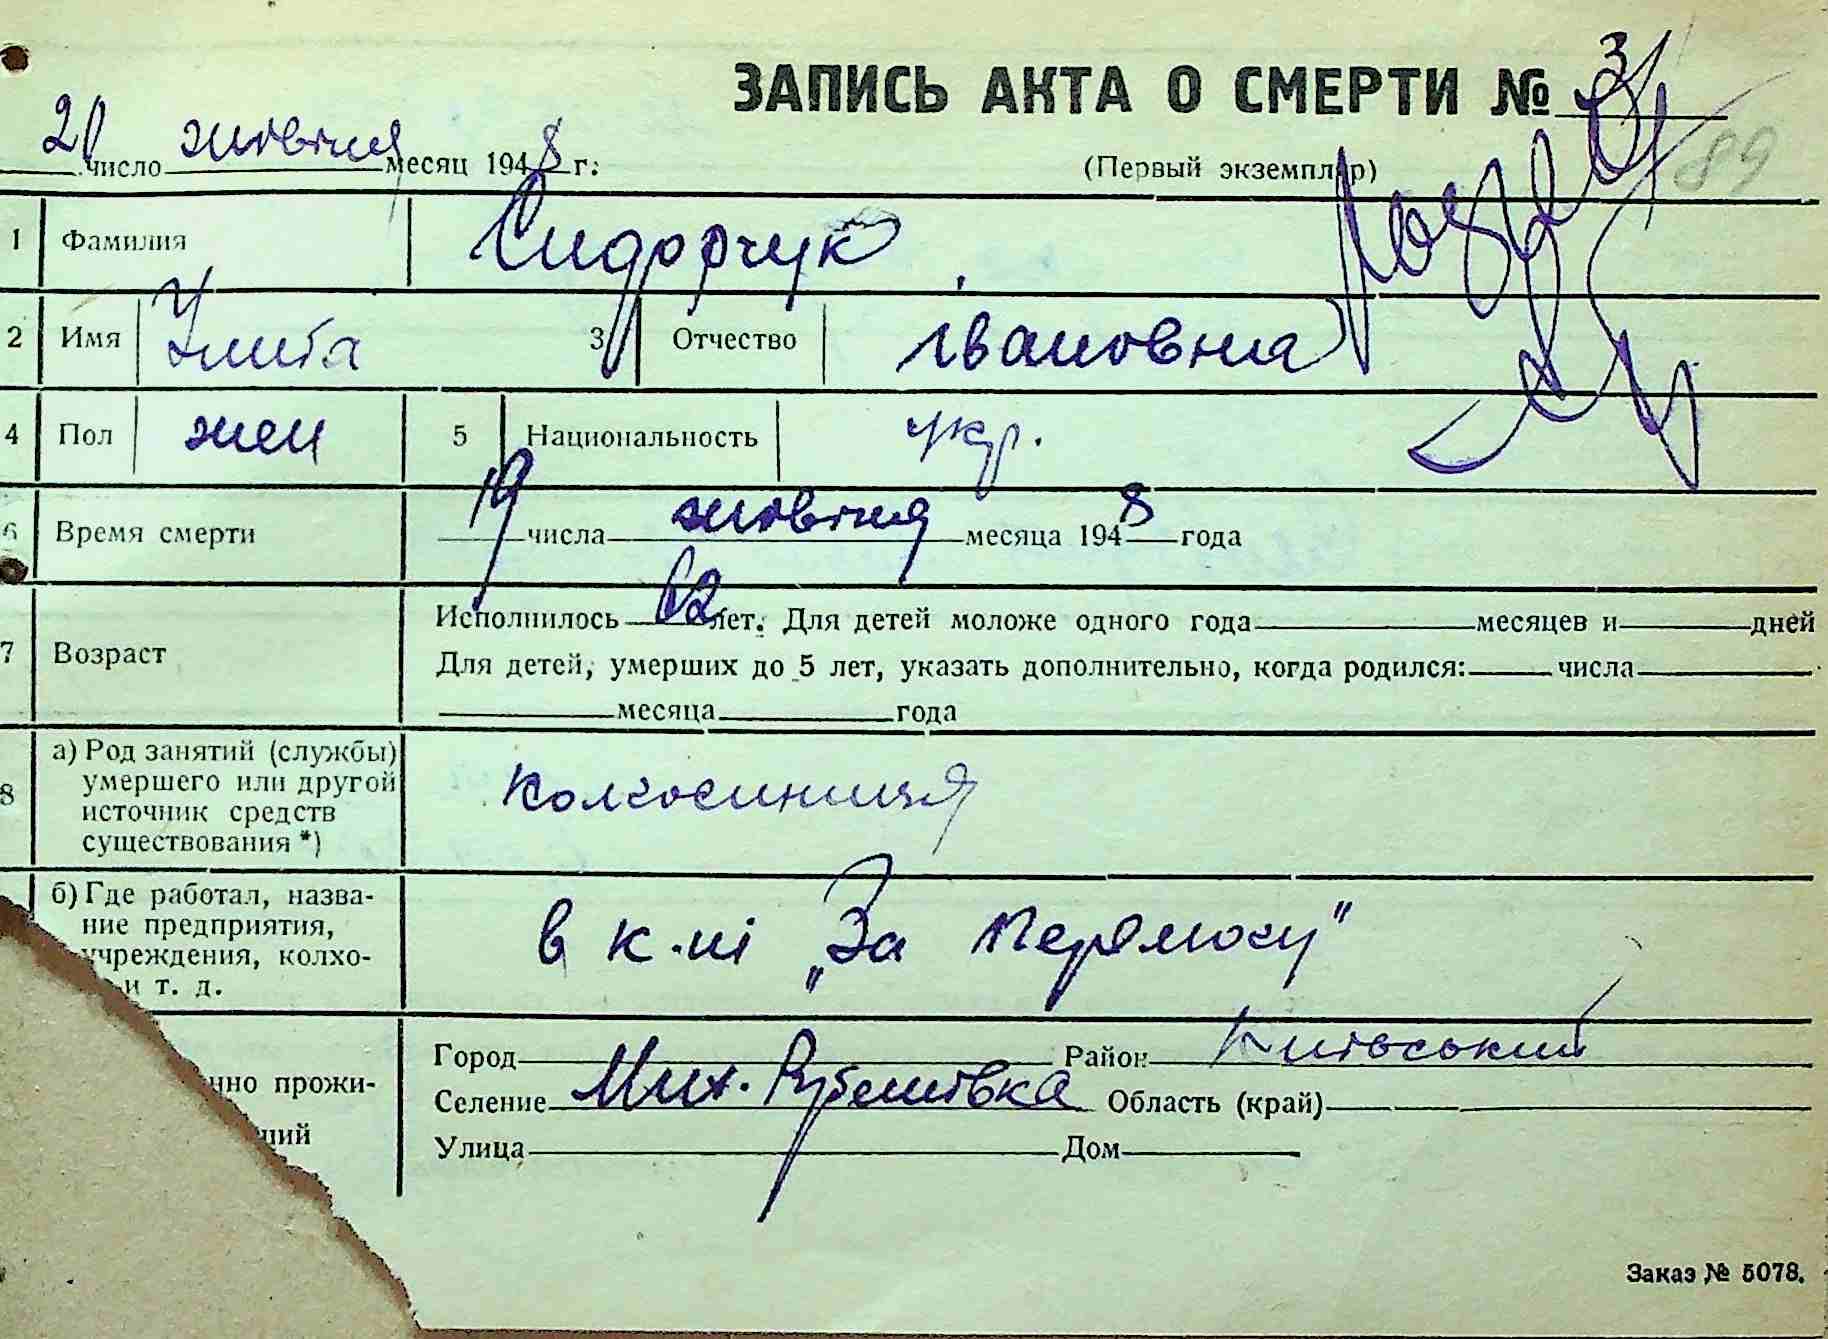 ЗАПИСЬ АКТА О СМЕРТИ № 31
89
20 число жовтня месяц 1948 г.
(Первый экземпляр)
1 Фамилия Сидорчук
2 Имя Улита 3 Отчество Івановна
4 Пол жен 5 Национальность укр.
6 Время смерти 19 числа жовтня месяца 1948 года
7 Возраст Исполнилось 62 лет. Для детей моложе одного года месяцев и дней
Для детей, умерших до 5 лет, указать дополнительно, когда родился: числа
месяца года
8 а) Род занятий (службы) умершего или другой источник средств существования *) колгосниця
б) Где работал, назва-
ние предприятия,
учреждения, колхо-
и т. д.
в к-ні „За перемогу"
нно прожи-
щий
Город Район Київський
Селение Мих. Рубежівка Область (край)
Улица Дом
Заказ № 5078.